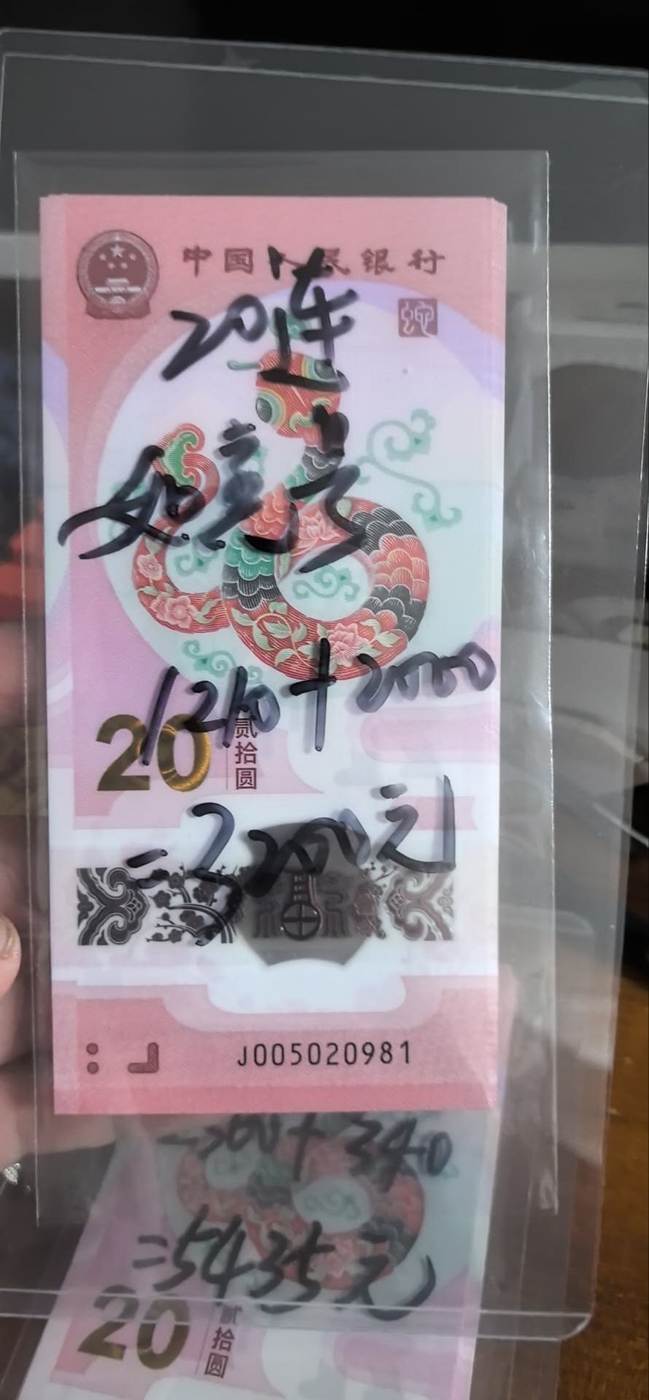 中国人民银行
蛇
20连
如意号
1210+2000
20
贰拾圆
=3200元
J005020981
300+340
=5435元
20
贰拾圆